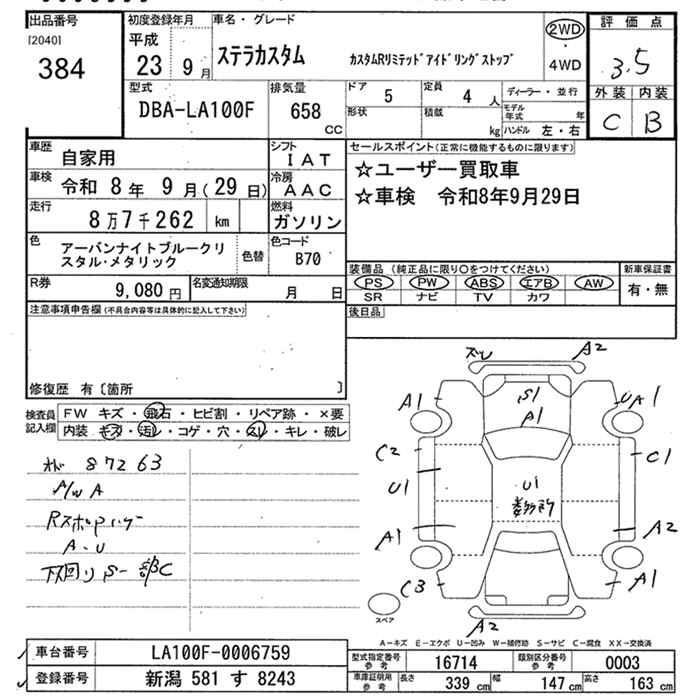 出品番号
[2040]
384
初度登録年月
平成
23 9月
車名・グレード
ステラカスタム カスタムRリミテッドアイドリングストップ
2WD
・
4WD
評価点
3.5
外装 内装
C B
型式
DBA-LA100F
排気量
658 CC
ドア 5
定員 4人
形状
積載 kg
ディーラー・並行
モデル年式 年
ハンドル 左・右
車歴
自家用
シフト
IAT
車検
令和 8年 9月(29日)
冷房
AAC
走行
8万7千262 km
燃料
ガソリン
色
アーバンナイトブルークリスタル・メタリック
色替
色コード
B70
R券
9,080円
名変通知期限
月 日
セールスポイント(正常に機能するものに限ります)
☆ユーザー買取車
☆車検 令和8年9月29日
装備品(純正品に限り○をつけてください)
新車保証書
PS PW ABS エアB AW
SR ナビ TV カワ
有・無
後日品
注意事項申告欄(不具合内容等は具体的に記入して下さい)
修復歴 有〔箇所 〕
検査員記入欄
FW キズ・飛石・ヒビ割・リペア跡・×要
内装 キズ・汚レ・コゲ・穴・スレ・キレ・破レ
87263
A/W A
A・U
下回りS-部C
A2
S1
A1
A1
UA1
C2
C1
U1
U1
多数所
A1
A2
C3
A1
A2
スペア
A-キズ E-エクボ U-凹み W-補修跡 S-サビ C-腐食 XX-交換済
車台番号 LA100F-0006759
登録番号 新潟 581 す 8243
型式指定番号 参考 16714
類別区分番号 参考 0003
車庫証明用 参考 長さ 339 cm 幅 147 cm 高さ 163 cm